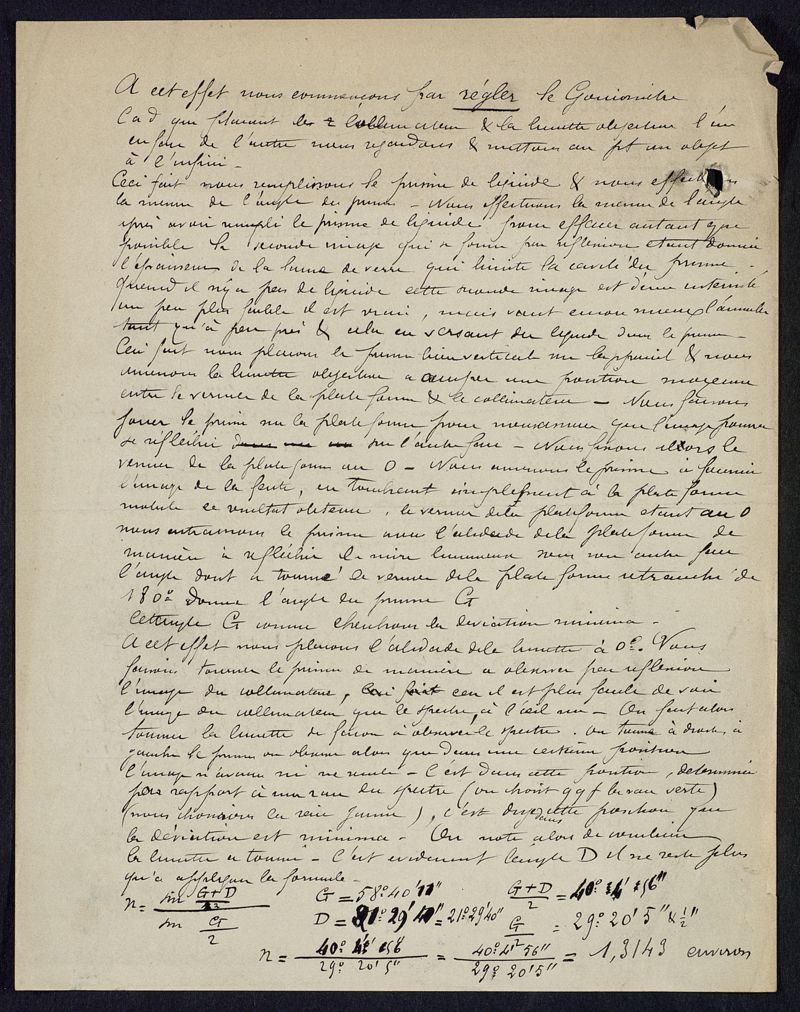 A cet effet nous commençons par régler le Goniomètre
Cad que plaçant les 2 collimateur & la lunette objective l'un
en face de l'autre nous regardons & mettons au pt un objet
à l'infini -
Ceci fait nous remplissons le prisme de liquide & nous effectuons
la mesure de l'angle du prisme - Nous effectuons la mesure de l'angle
après avoir rempli le prisme de liquide pour effacer autant que
possible la seconde image qui se forme par réflexion étant donnée
l'épaisseur de la lame de verre qui limite la cavité du prisme -
Quand il n'y a pas de liquide cette seconde image est d'une intensité
un peu plus faible il est vrai, mais vaut encore mieux l'annuler
tant qu'à peu près & cela en versant du liquide dans le prisme -
Ceci fait nous plaçons le prisme bien vertical sur l'appareil & nous
amenons la lunette objective a occuper une position moyenne
entre le vernier de la plateforme & le collimateur - Nous faisons
tourner le prisme sur la plateforme pour nous assurer que l'image pourra
se réfléchir sur l'autre face - Nous fixons alors le
vernier de la plateforme au 0 - Nous amenons le prisme à fournir
l'image de la fente, en touchant simplement à la plateforme
mobile ce résultat obtenu, le vernier de la plateforme étant au 0
nous entrainons le prisme avec l'alidade de la plateforme de
manière à réfléchir la mire lumineuse sous son autre face
l'angle dont a tourné le vernier de la plate forme retranché de
180° donne l'angle du prisme G
Cet angle G connu cherchons la déviation minima -
A cet effet nous plaçons l'alidade de la lunette à 0°. Nous
faisons tourner le prisme de manière a observer par réflexion
l'image du collimateur, car il est plus facile de voir
l'image du collimateur que le spectre, à l'œil nu - On fait alors
tourner la lunette de façon à observer le spectre. on tourne à droite, à
gauche le prisme on observe alors que dans une certaine position
l'image n'avance ni ne recule - C'est dans cette position, déterminée
par rapport à une raie du spectre (on choisit qqf la raie verte)
(nous choisirons la raie jaune), c'est dans cette position que
la déviation est minima - On note alors de combien
la lunette a tourné - C'est évidemment l'angle D il ne reste plus
qu'a appliquer la formule -
n = sin G+D/2 / sin G/2 G = 58° 40' 11" G+D/2 = 40° 4' 56"
D = 21° 29' 40" = 21° 29' 40" G/2 = 29° 20' 5" & 1/2"
n = 40° 4' 56" / 29° 20' 5" = 40° 4' 56" / 29° 20' 5" = 1,3143 environ